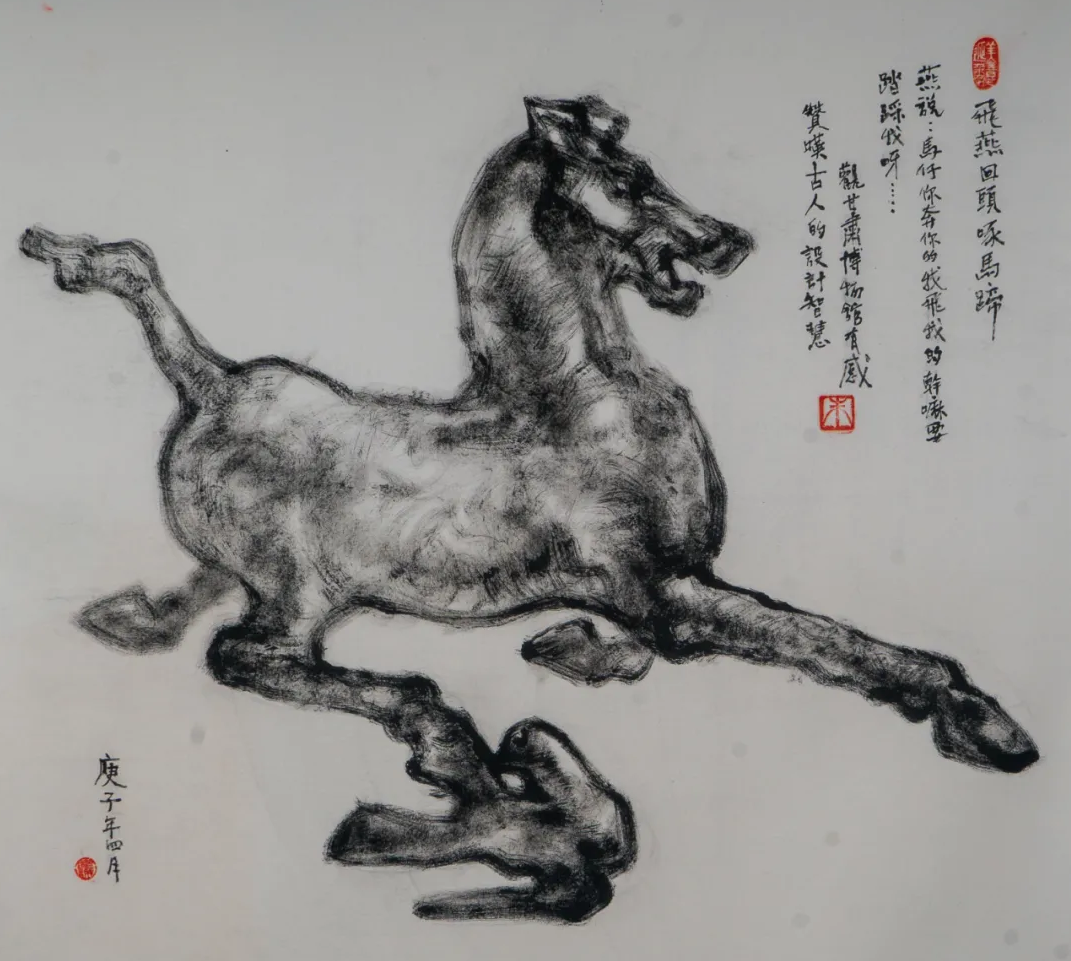 飛燕回頭啄馬蹄
燕說：馬仔你奔你的我飛我的幹嘛要
踏踩我呀……
觀甘肅博物館有感
贊嘆古人的設計智慧
庚子年四月